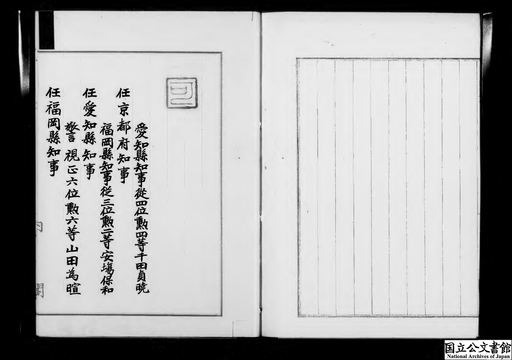 愛知縣知事從四位勲四等千田貞暁
任京都府知事
福岡縣知事從三位勲二等安場保和
任愛知縣知事
警視正六位勲六等山田為暄
任福岡縣知事
内閣
国立公文書館
National Archives of Japan